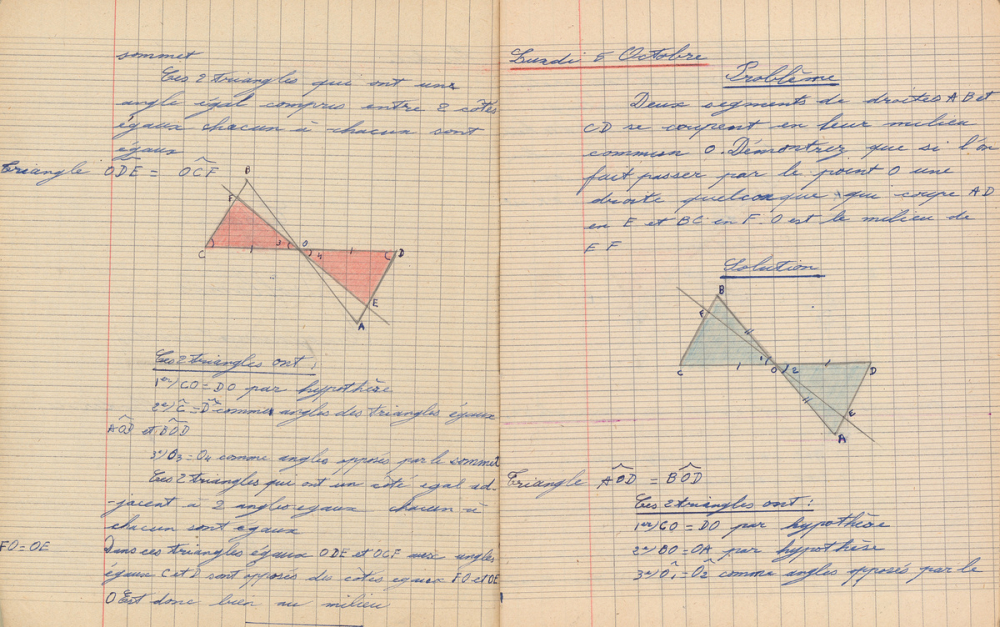 sommet
Ces 2 triangles que ont une
angle égal compris entre 2 côtés
égaux chacun à chacun sont
égaux
Triangle ODE = OCF
B
F
C
3
O
4
D
E
A
Ces 2 triangles ont :
1er) CO = DO par hypothèse
2e) C = D comme angles des triangles égaux
AOD et BOD
3e) O3 = O4 comme angles opposés par le sommet
Ces 2 triangles qui ont un côté egal ad-
-jacent à 2 angles egaux chacun à
chacun sont egaux
FO = OE
Dans ces triangles égaux ODE et OCF aux angles
égaux C et D sont opposés des côtes egaux FO et OE
O Est donc bien au milieu
Lundi 5 Octobre
Problème
Deux segments de droites AB et
CD se coupent en leur milieu
commun O. Démontrez que si l'on
fait passer par le point O une
droite quelconque qui coupe AD
en E et BC en F. O est le milieu de
EF
Solution
B
F
C
1
O
2
D
E
A
Triangle AOD = BOD
Ces 2 triangles ont :
1er) CO = DO par hypothèse
2e) BO = OA par hypothèse
3e) O1 = O2 comme angles opposés par le